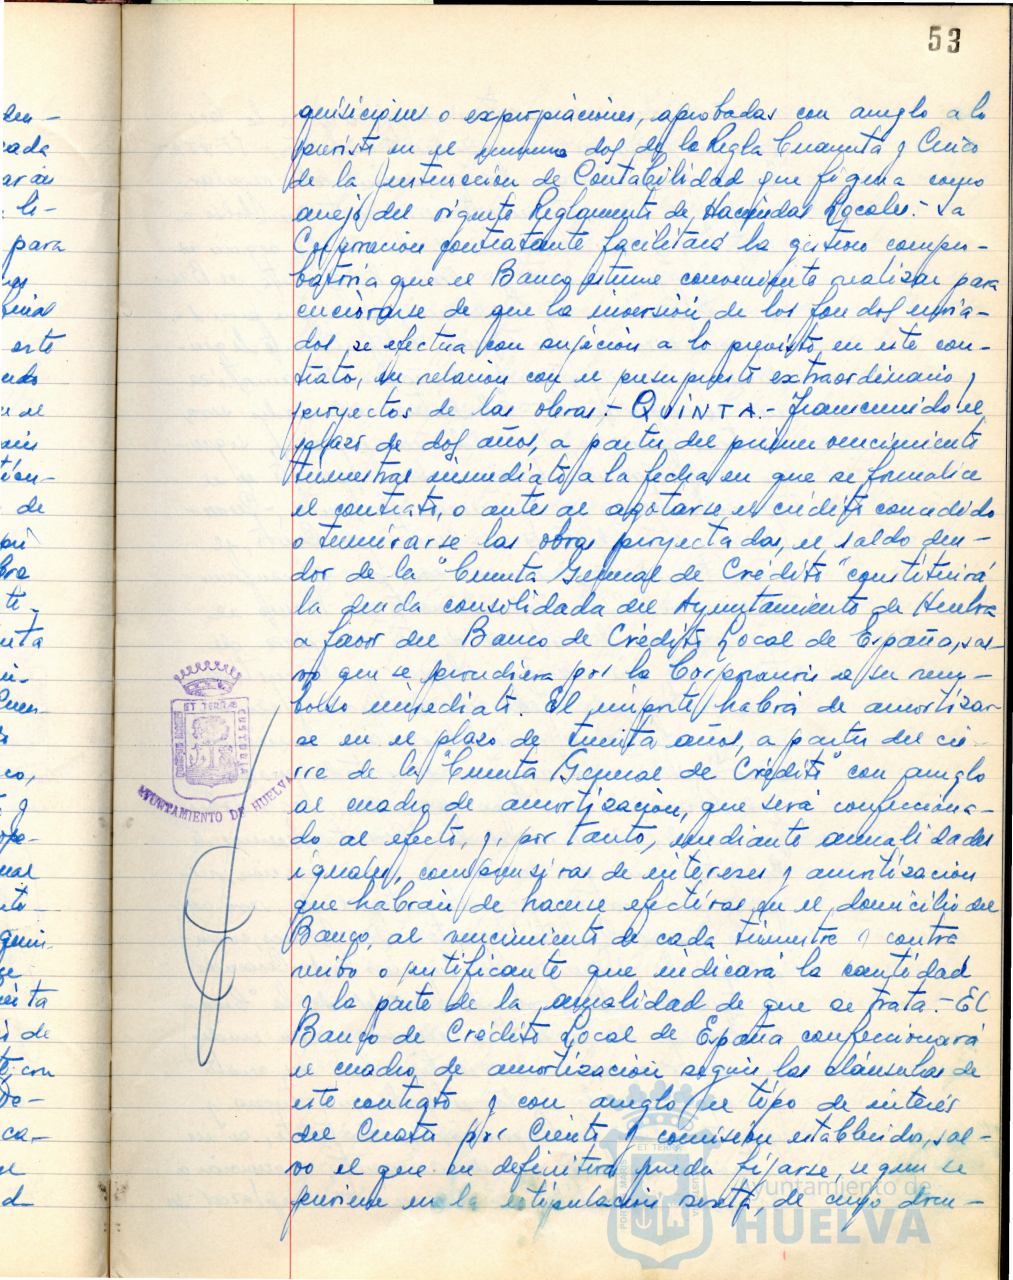 53
quisiciones o expropiaciones, aprobadas con arreglo a lo
previsto en el número dos de la Regla Cuarenta y Cinco
de la Instrucción de Contabilidad que figura como
anejo del vigente Reglamento de Haciendas Locales.- La
Corporación contratante facilitará la gestión compro-
batoria que el Banco estime conveniente realizar para
cerciorarse de que la inversión de los fondos envia-
dos se efectua con sujeción a lo previsto en este con-
trato, en relación con el presupuesto extraordinario y
proyectos de las obras.- QUINTA.- Transcurrido el
plazo de dos años, a partir del primer vencimiento
trimestral inmediato a la fecha en que se formalice
el contrato, o antes al agotarse el crédito concedido
o terminarse las obras proyectadas, el saldo deu-
dor de la "Cuenta General de Crédito" constituirá
la deuda consolidada del Ayuntamiento de Huelva
a favor del Banco de Crédito Local de España, sal-
vo que se procediera por la Corporación a su reem-
bolso inmediato. El importe habrá de amortizar-
se en el plazo de treinta años, a partir del cie-
rre de la "Cuenta General de Crédito" con arreglo
al cuadro de amortización, que será confecciona-
do al efecto, y, por tanto, mediante anualidades
iguales, comprensivas de intereses y amortización
que habrán de hacerse efectivas en el domicilio del
Banco, al vencimiento de cada trimestre y contra
recibo o justificante que indicará la cantidad
y la parte de la anualidad de que se trata.- El
Banco de Crédito Local de España confeccionará
el cuadro de amortización según las cláusulas de
este contrato y con arreglo al tipo de interés
del Cuatro por Ciento y comisión establecidos, sal-
vo el que en definitiva pueda fijarse, según se
previene en la estipulación sexta, de cuyo docu-
ET TERRÆ
CUSTODIA
AYUNTAMIENTO DE HUELVA
Ayuntamiento de
HUELVA